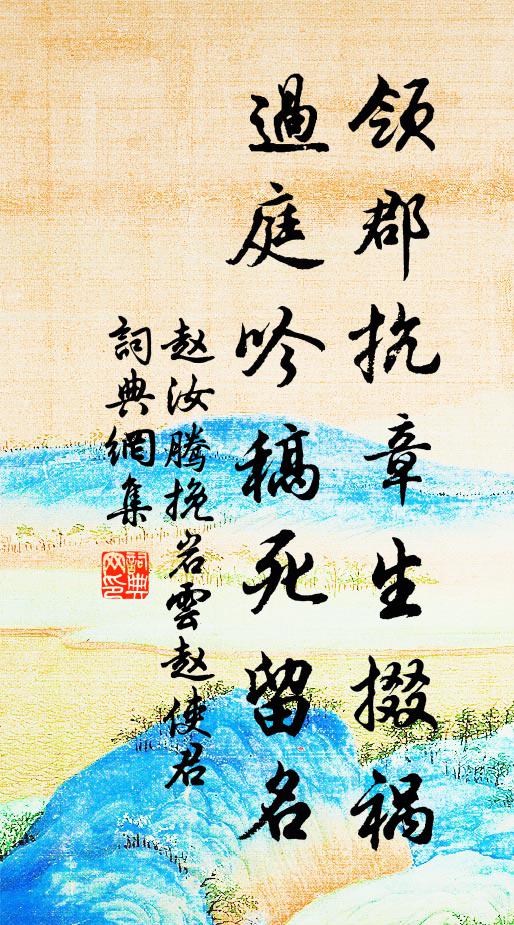 领郡抗章生掇祸
過庭吟稿死留名
赵汝腾挽岩雲赵使君
詞典網集
詞典網印